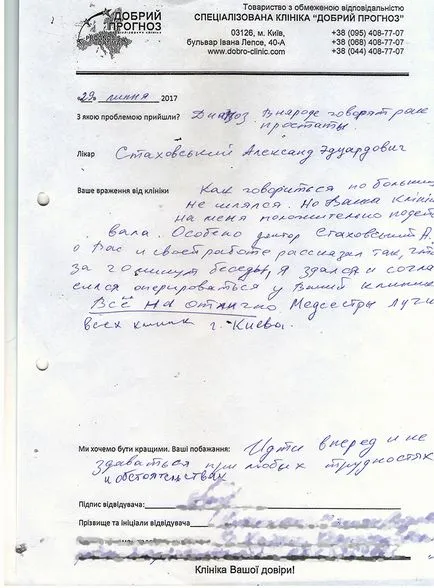 ДОБРИЙ ПРОГНОЗ
Товариство з обмеженою відповідальністю
СПЕЦІАЛІЗОВАНА КЛІНІКА "ДОБРИЙ ПРОГНОЗ"
03126, м. Київ,
бульвар Івана Лепсе, 40-А
www.dobro-clinic.com
+38 (095) 408-77-07
+38 (068) 408-77-07
+38 (044) 408-77-07
29 липня 2017
З якою проблемою прийшли? Диагноз. В народе говорят рак
простаты.
Лікар Стаховський Александ Эдуардович
Ваше враження від клініки Как говориться по больниц
не шлялся. Но Ваша Клини
на меня положительно подей
вала. Особено доктор Стаховский А.
о Вас и своей работе рассказал так, что
за 20 минут беседы, я здался и согла
сился оперироваться у Вашей клинике
Всё на отлично Медсестры Лучш
всех клиник г. Киева.
Ми хочемо бути кращими. Ваші побажання: Идти вперед и не
здаваться при любых трудностях
и обстоятельствах
Підпис відвідувача:
Прізвище та ініціали відвідувача
Клініка Вашої довіри!